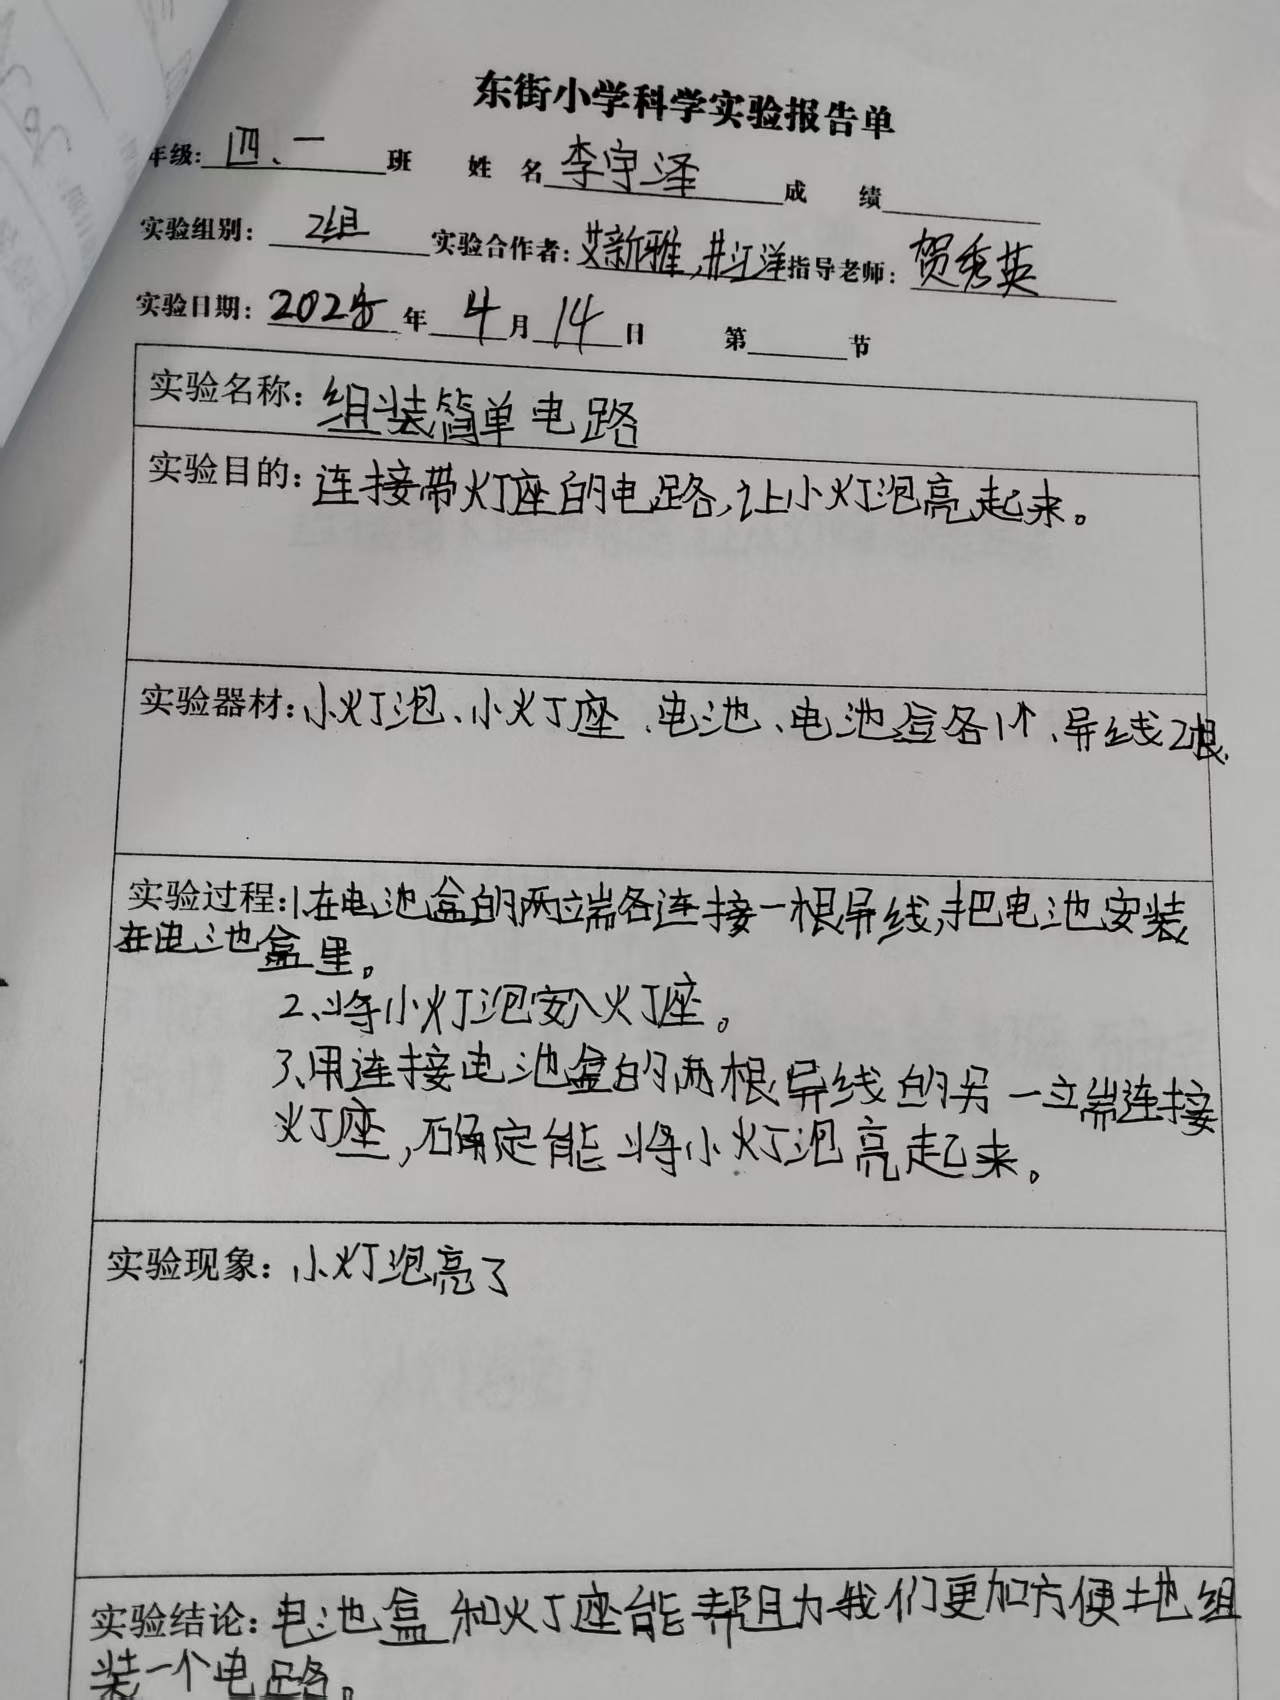 东街小学科学实验报告单
年级: 四、一 班 姓 名 李宇泽 成 绩
实验组别: 2组 实验合作者: 艾新雅,井江洋 指导老师: 贺秀英
实验日期: 2025 年 4 月 14 日 第 节
实验名称: 组装简单电路
实验目的: 连接带灯座的电路,让小灯泡亮起来。
实验器材: 小灯泡、小灯座、电池、电池盒各1个、导线2根.
实验过程: 1.在电池盒的两端各连接一根导线,把电池安装
在电池盒里。
2、将小灯泡安入灯座。
3、用连接电池盒的两根导线的另一端连接
灯座,确定能将小灯泡亮起来。
实验现象: 小灯泡亮了
实验结论: 电池盒和灯座能帮助我们更加方便地组
装一个电路。